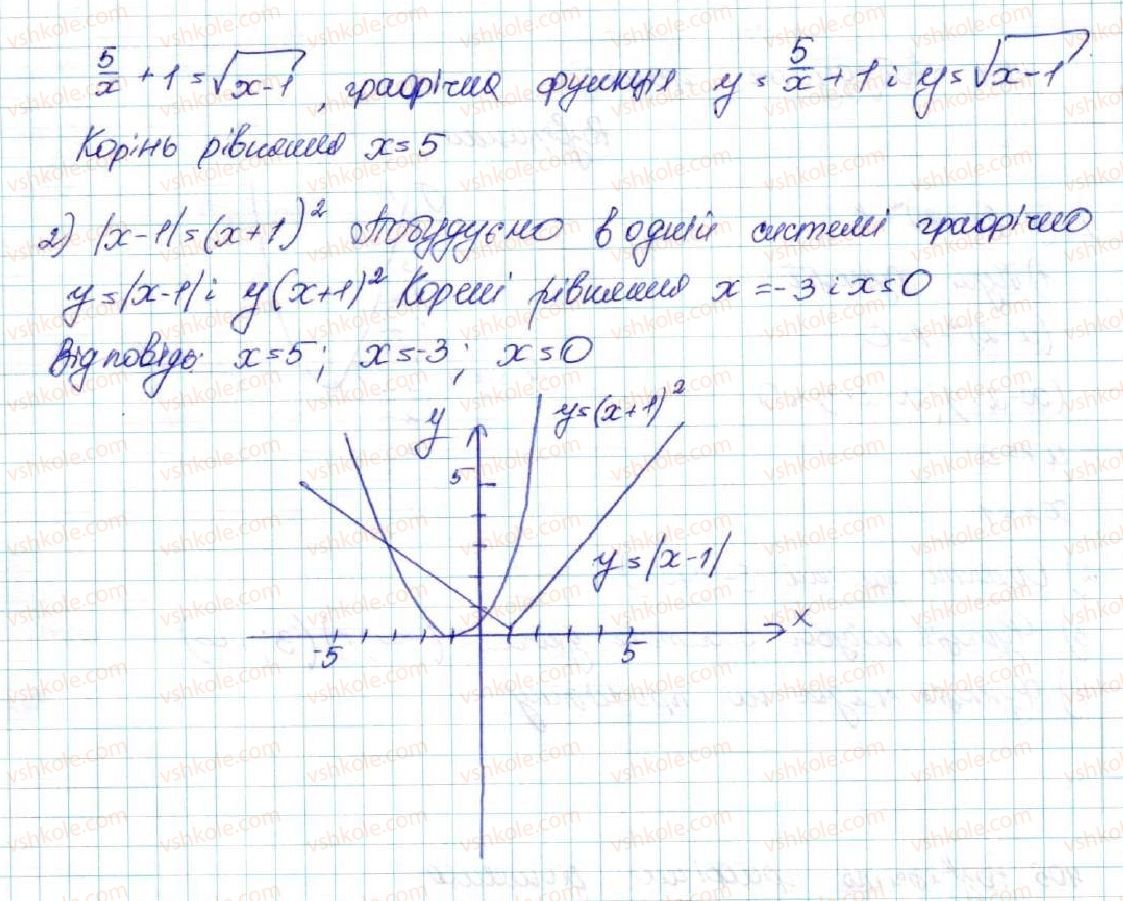 5/x + 1 = √x-1, графічна функція y = 5/x + 1 і y = √x-1
Корінь рівняння x = 5
2) |x-1| = (x+1)² Побудуємо в одній системі графічно
y = |x-1| і y(x+1)² Корені рівняння x = -3 і x = 0
Відповідь: x = 5; x = -3; x = 0
y
y = (x+1)²
5
y = |x-1|
x
-5
5